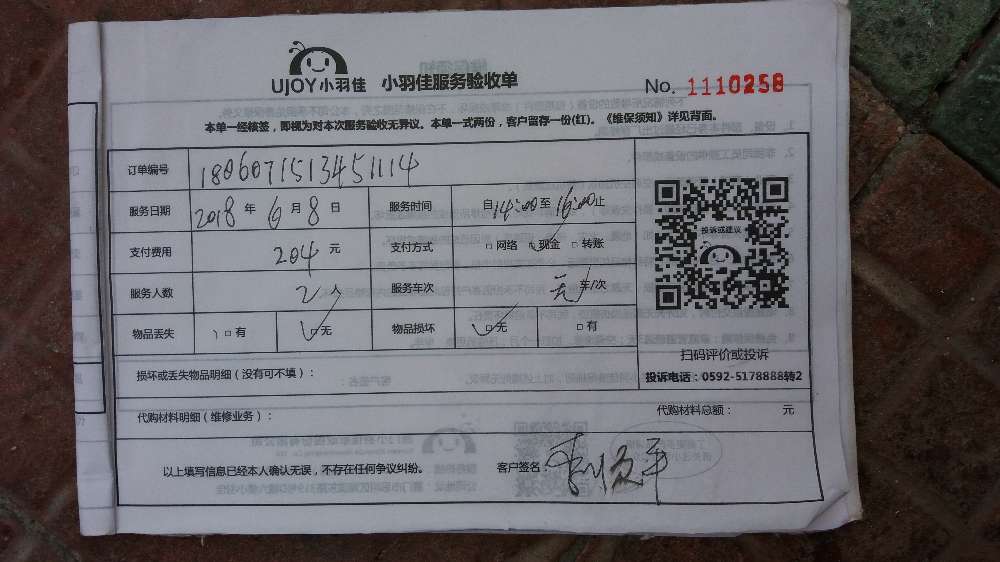 UJOY小羽佳 小羽佳服务验收单
No. 1110258
本单一经核签，即视为对本次服务验收无异议。本单一式两份，客户留存一份(红)。《维保须知》详见背面。
订单编号 180607151345１114
服务日期 2018 年 6 月 8 日 服务时间 自14:00至16:00止
支付费用 204 元 支付方式 □网络 □现金 □转账
服务人数 2 人 服务车次 无 车/次
物品丢失 □有 □无 物品损坏 □无 □有
投诉或建议
扫码评价或投诉
投诉电话：0592-5178888转2
损坏或丢失物品明细（没有可不填）：
代购材料明细（维修业务）： 代购材料总额： 元
以上填写信息已经本人确认无误，不存在任何争议纠纷。 客户签名：